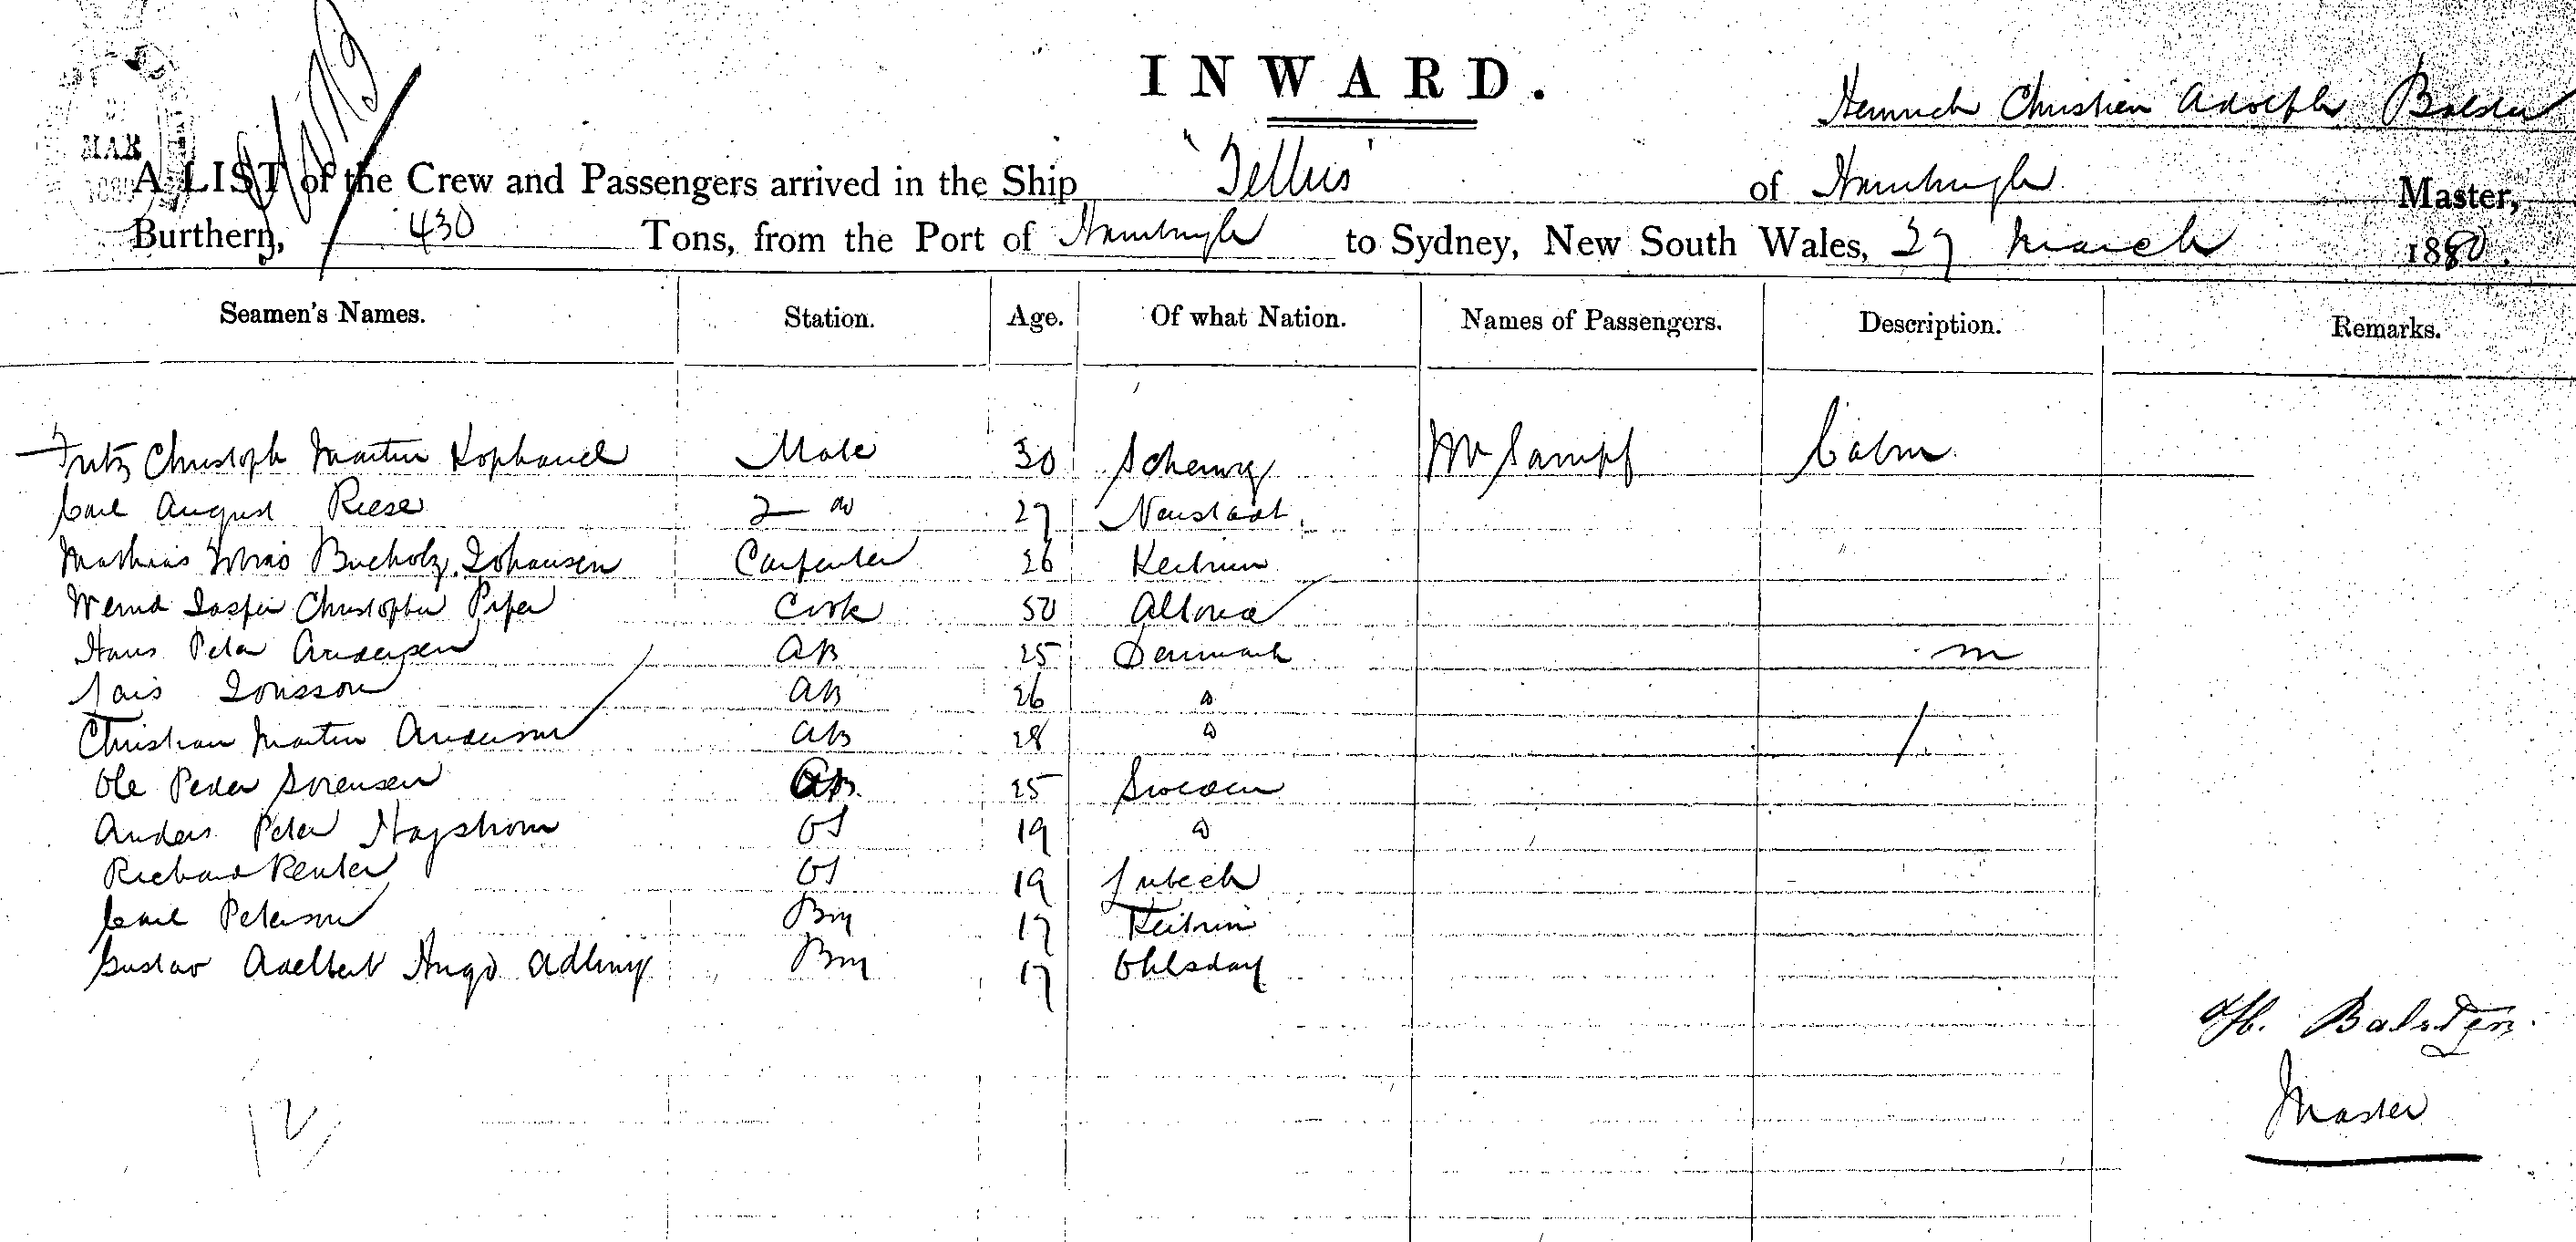 INWARD.
Heinrich Christian Adolph Balster
MAR
A LIST of the Crew and Passengers arrived in the Ship "Tellus" of Hamburgh Master,
Burthern, 430 Tons, from the Port of Hamburgh to Sydney, New South Wales, 29 March 1880.
Seamen's Names. Station. Age. Of what Nation. Names of Passengers. Description. Remarks.
Fritz Christoph Martin Mate 30 Mr Sampf Cabin
Carl August Reese 2 27 Neustadt
Mathias Bucholz Johansen Carpenter 26 Keitum
Jasper Christopher Piper Cook 50 Altona
Hans Peter Andersen AB 25 Denmark
Jonsson AB 26
Christian Martin Anderson AB 28
Ole Peder Sorensen AB. 25 Sweden
Anders Peter Hagstrom OS 19
Richard Reuter OS 19 Lubeck
Carl Peterson Boy 17 Keitum
Gustav Adelbert Hugo Boy 17
H. Balster
Master
12